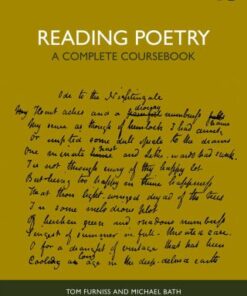 READING POETRY
A COMPLETE COURSEBOOK
Ode to the Nightingale
My Heart aches and a drowsy numbness falls
My sense as though of hemlock I had
or emptied some dull opiate to the drains
One minute and Lethe-wards had sunk
Tis not through envy of thy happy lot
But being too happy in thine happiness
That thou light-winged dryad of the trees
In some melodious plot
Of beechen green and shadows numberless
Singest of summer in full-throated ease.
O for a draught of vintage that has been
Cooling an age in the deep-delved earth
TOM FURNISS AND MICHAEL BATH